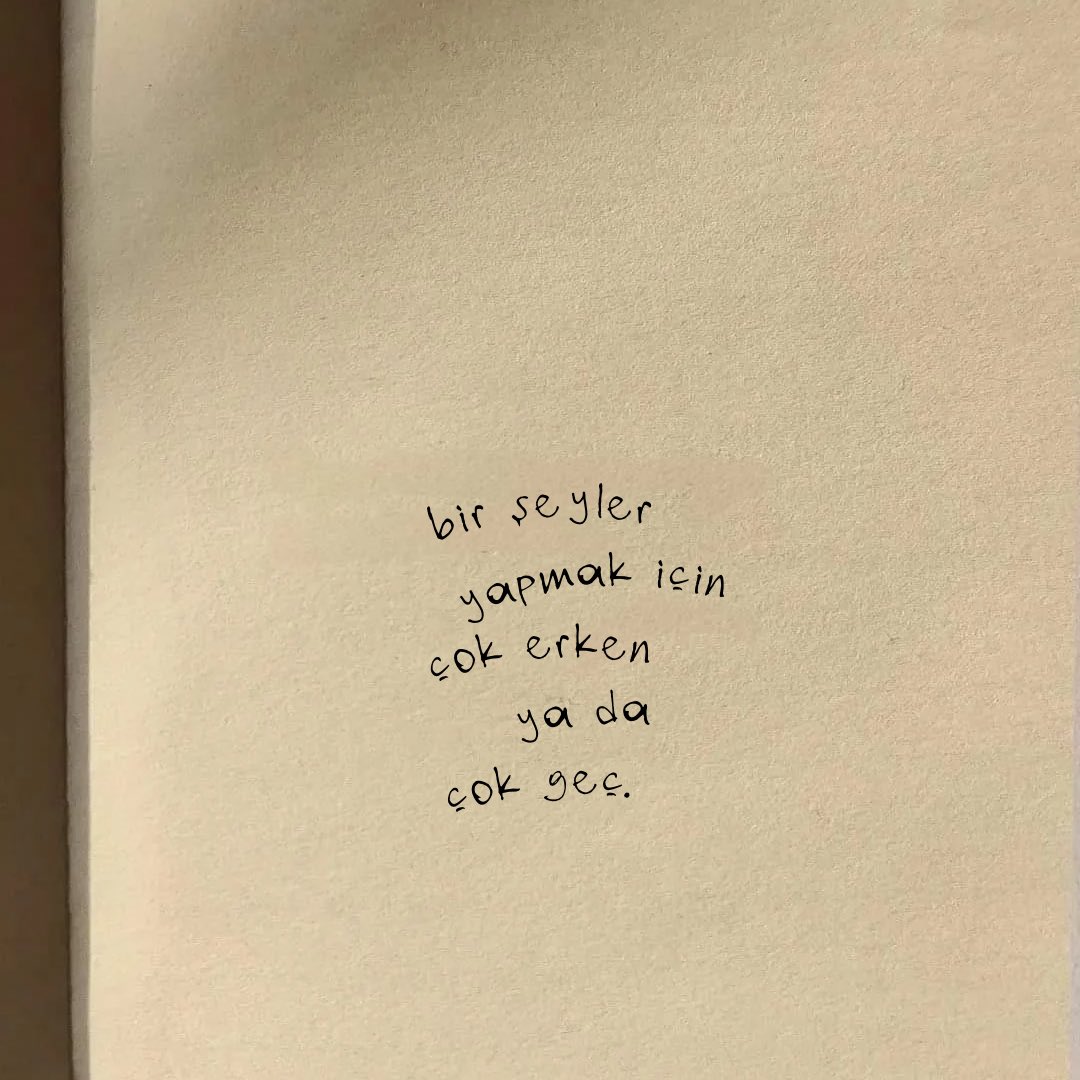 bir şeyler
yapmak için
çok erken
ya da
çok geç.